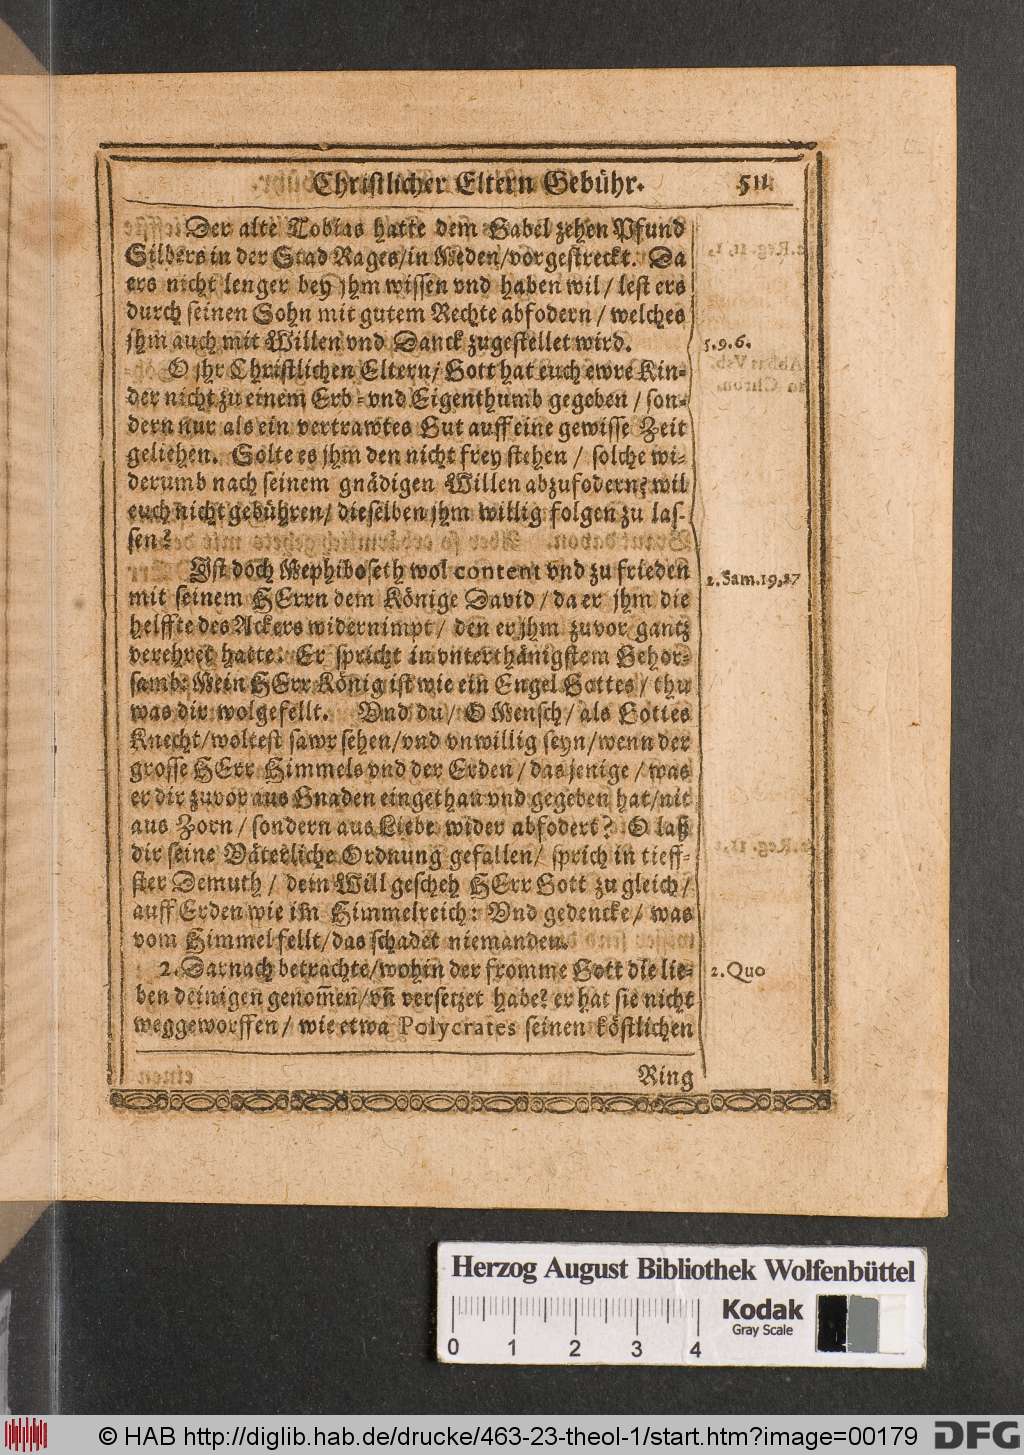 Christlicher Eltern Gebühr. 511
Der alte Tobias hatte dem Gabel zehen Pfund
Silbers in der Stad Rages/in Meden/vorgestreckt. Da
ers nicht lenger bey jhm wissen vnd haben wil/ lest ers
durch seinen Sohn mit gutem Rechte abfodern/ welches
jhm auch mit Willen vnd Danck zugestellet wird.
5.9.6.
O jhr Christlichen Eltern/ Gott hat euch ewre Kin-
der nicht zu einem Erb- vnd Eigenthumb gegeben/ son-
dern nur als ein vertrawtes Gut auff eine gewisse Zeit
geliehen. Solte es jhm den nicht frey stehen/ solche wi-
derumb nach seinem gnädigen Willen abzufodern? wil
euch nicht gebühren/ dieselben jhm willig folgen zu las-
sen?
Ist doch Mephiboseth wol content vnd zu frieden
2. Sam. 19,27
mit seinem HErrn dem Könige David/ da er jhm die
helffte des Ackers widernimpt/ den er jhm zuvor gantz
verehret hatte. Er spricht in vnterthänigstem Gehor-
samb: Mein HErr König ist wie ein Engel Gottes/ thu
was dir wolgefellt. Vnd du/ O Mensch/ als Gottes
Knecht/woltest sawr sehen/vnd vnwillig seyn/wenn der
grosse HErr Himmels vnd der Erden/ das jenige/ was
er dir zuvor aus Gnaden eingethan vnd gegeben hat/nit
aus Zorn/ sondern aus Liebe wider abfodert? O laß
dir seine Väterliche Ordnung gefallen/ sprich in tieff-
ster Demuth/ dein Will gescheh HErr Gott zu gleich/
auff Erden wie im Himmelreich: Vnd gedencke/ was
vom Himmel fellt/das schadet niemanden.
2. Darnach betrachte/wohin der fromme Gott die lie-
2. Quo
ben deinigen genom̃en/vn̄ versetzet habe? er hat sie nicht
weggeworffen/ wie etwa Polycrates seinen köstlichen
Ring
Herzog August Bibliothek Wolfenbüttel
Kodak
Gray Scale
0 1 2 3 4
© HAB http://diglib.hab.de/drucke/463-23-theol-1/start.htm?image=00179
DFG